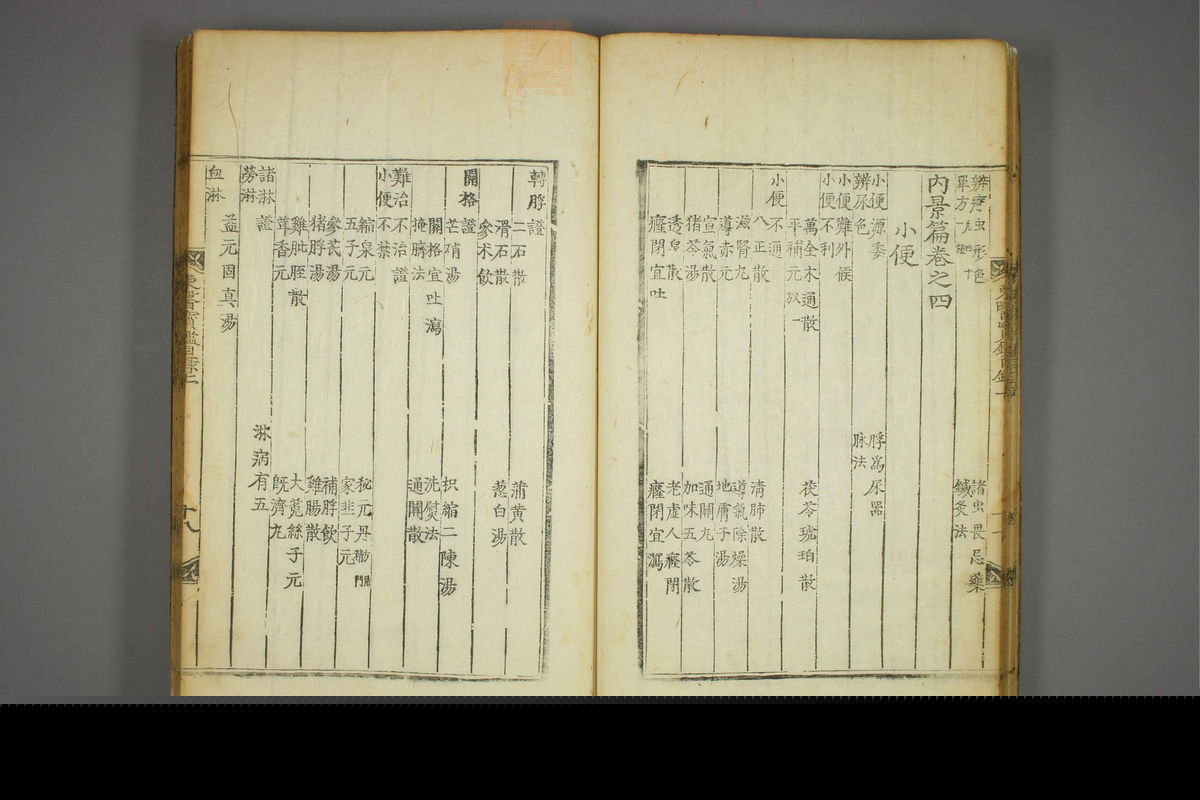 辨虫形色
諸虫畏忌藥
單方
鍼灸法
內景篇卷之四
小便
小便源委
脬為尿器
辨尿色
脉法
小便難外候
小便不利
萬全木通散
茯苓琥珀散
平補元
小便不通
八正散
清肺散
滋腎丸
導氣除燥湯
導赤元
地膚子湯
宣氣散
通關丸
猪苓湯
加味五苓散
透泉散
老虛人癃閉
癃閉宜吐
癃閉宜瀉
轉脬證
二石散
蒲黃散
滑石散
葱白湯
參朮飲
關格證
芒硝湯
枳縮二陳湯
關格宜吐瀉
洗熨法
掩臍法
通關散
難治不治證
小便不禁
縮泉元
秘元丹
五子元
家韭子元
參芪湯
補脬飲
猪脬湯
雞腸散
雞肶胵散
大菟絲子元
茸香元
既濟丸
諸淋證
淋病有五
勞淋
益元固真湯
血淋
東醫寶鑑目錄二
十八